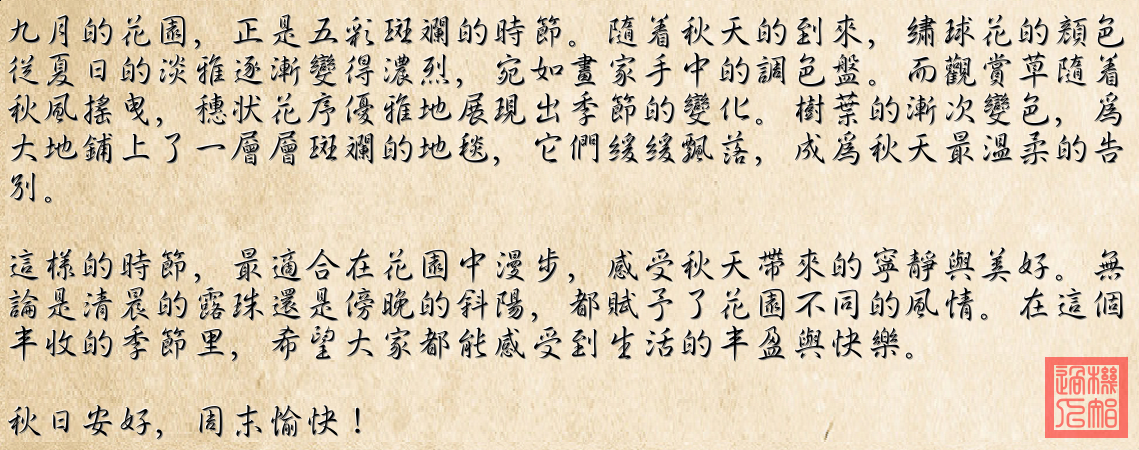 九月的花園，正是五彩斑斕的時節。隨着秋天的到來，繡球花的顏色
從夏日的淡雅逐漸變得濃烈，宛如畫家手中的調色盤。而觀賞草隨着
秋風搖曳，穗狀花序優雅地展現出季節的變化。樹葉的漸次變色，爲
大地鋪上了一層層斑斕的地毯，它們緩緩飄落，成爲秋天最溫柔的告
別。
這樣的時節，最適合在花園中漫步，感受秋天帶來的寧靜與美好。無
論是清晨的露珠還是傍晚的斜陽，都賦予了花園不同的風情。在這個
丰收的季節里，希望大家都能感受到生活的丰盈與快樂。
秋日安好，周末愉快！